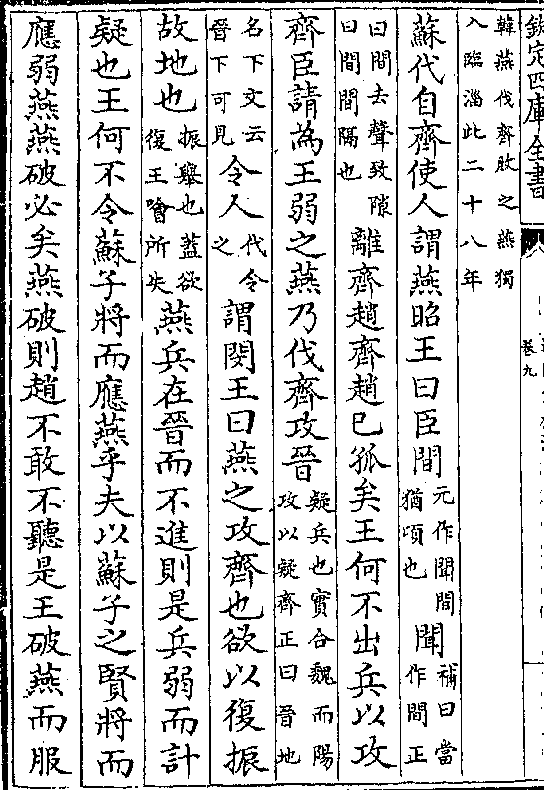 欽定四庫全書
卷九
韓燕伐齊敗之燕獨
入臨淄此二十八年
蘇代自齊使人謂燕昭王曰臣間元作聞間猶頃也聞補曰當作間正
曰間去聲致隙曰間間隔也離齊趙齊趙已孤矣王何不出兵以攻
齊臣請為王弱之燕乃伐齊攻晉疑兵也實合魏而陽攻以疑齊正曰晉地
名下文云晉下可見令人代令之謂閔王曰燕之攻齊也欲以復振
故地也振舉也蓋欲復王噲所失燕兵在晉而不進則是兵弱而計
疑也王何不令蘇子將而應燕乎夫以蘇子之賢將而
應弱燕燕破必矣燕破則趙不敢不聽是王破燕而服